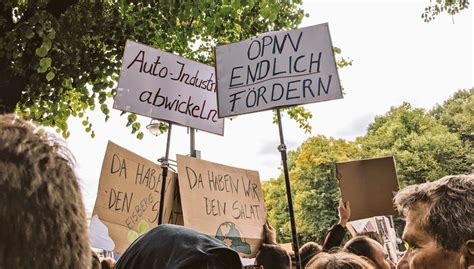 Auto Industrie
abwickeln
ÖPNV
ENDLICH
FÖRDERN
DA HABEN
DEN
EISBERG
DA HABEN WIR
DEN SALAT